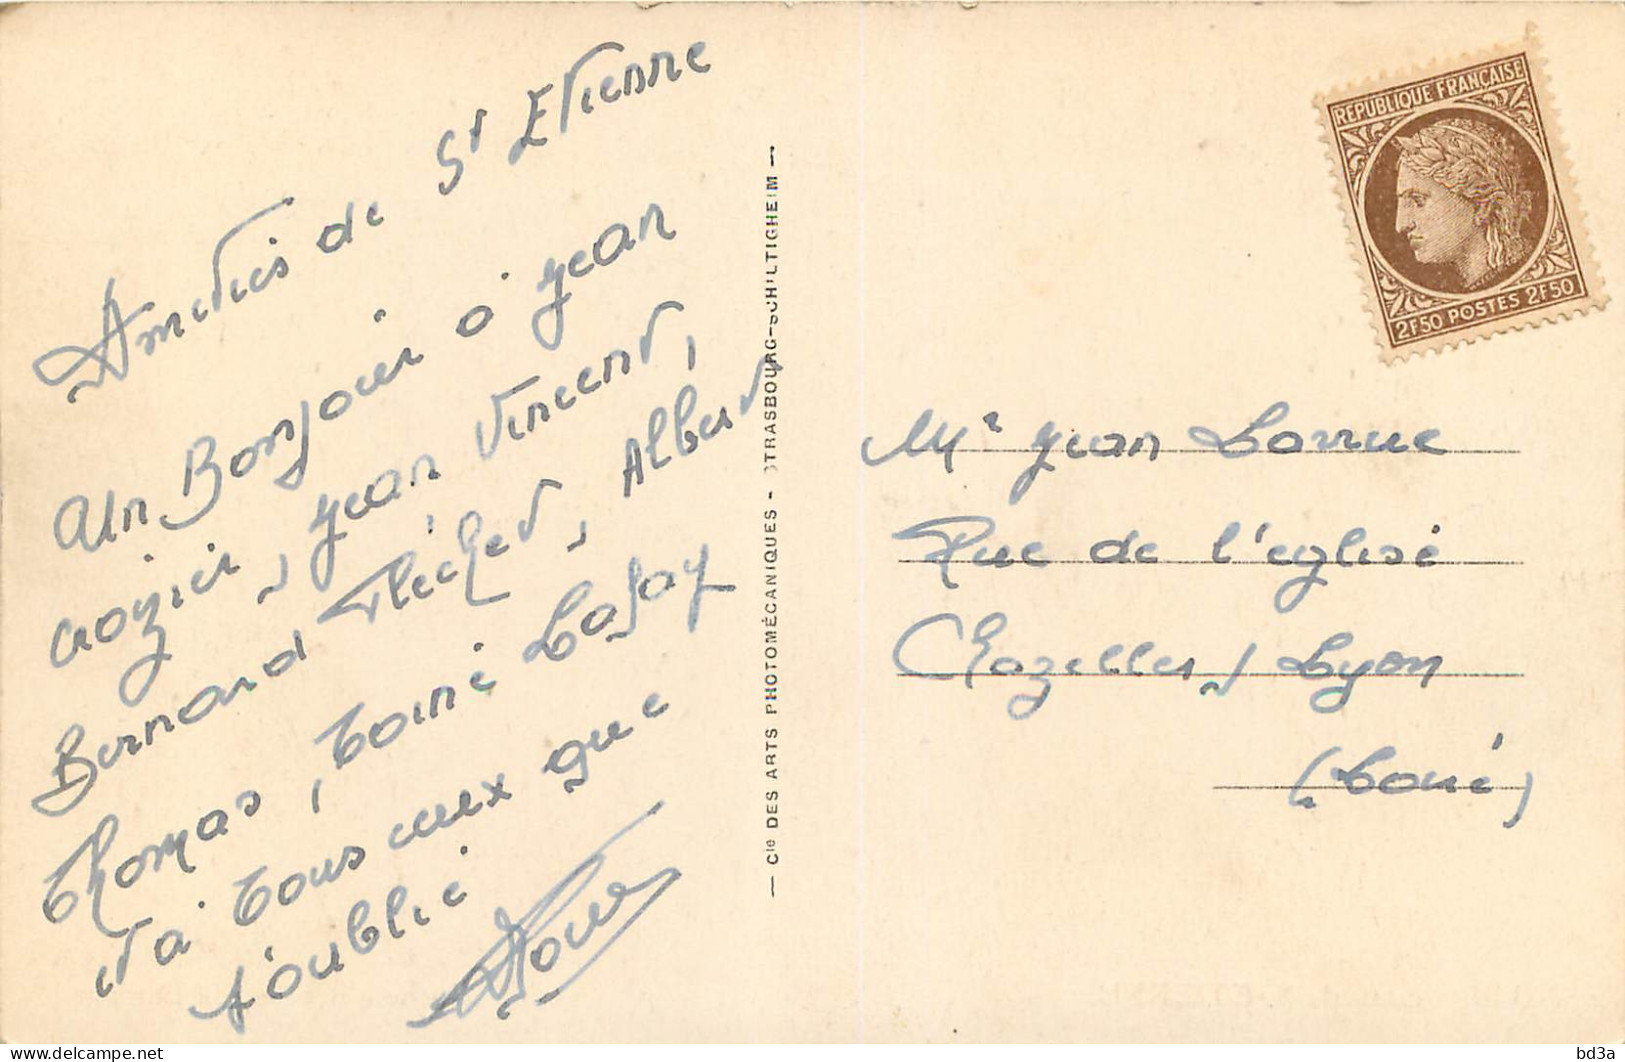 Amitiés de St Etienne
Un Bonjour à Jean
crozier, Jean Vincent,
Bernard Fléchet, Albert
Thomas, Toine Lafay
et à tous ceux que
j'oublie
Cie DES ARTS PHOTOMÉCANIQUES - STRASBOURG-SCHILTIGHEIM
REPUBLIQUE FRANÇAISE
2F50 POSTES 2F50
Mr Jean
Rue de l'eglise
Chazelles s/ Lyon
(Loire)
bd3a